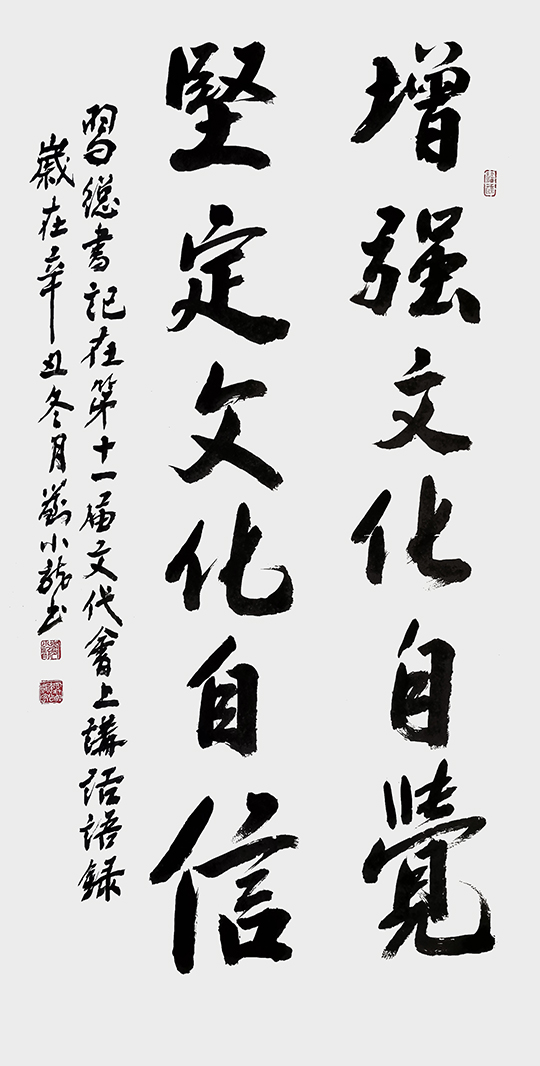 增强文化自覺
堅定文化自信
習總書記在第十一届文代會上講話語録
歲在辛丑冬月劉小龍書